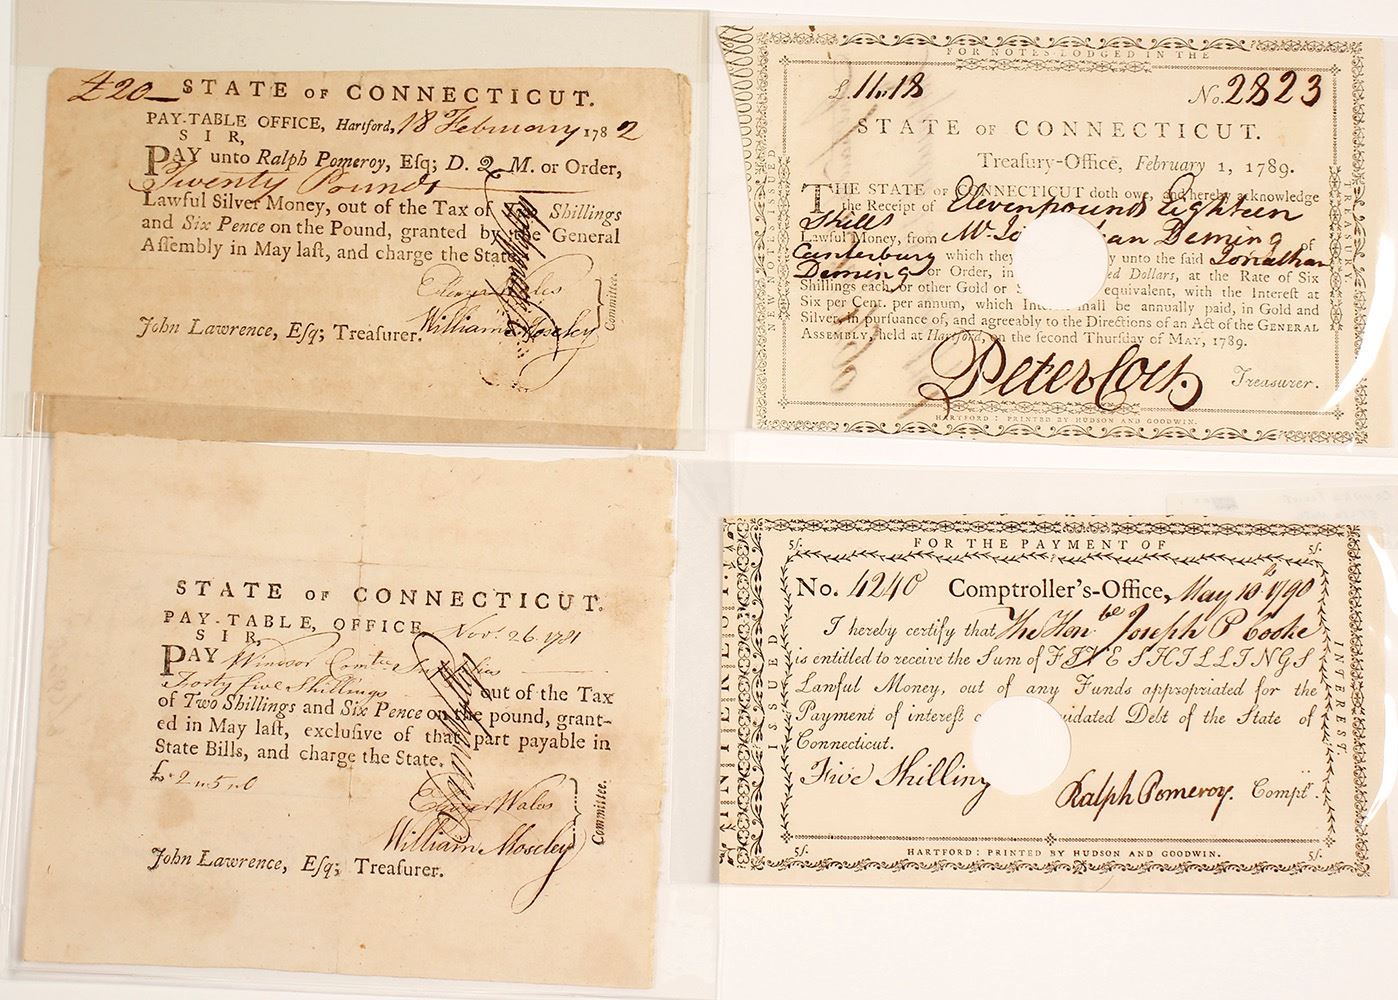 £20 STATE OF CONNECTICUT.
PAY-TABLE OFFICE, Hartford, 18 February 1782
SIR,
PAY unto Ralph Pomeroy, Esq; D. 2. M. or Order,
Twenty Pounds
Lawful Silver Money, out of the Tax of Shillings
and Six Pence on the Pound, granted by the General
Assembly in May last, and charge the State.
Wales
William Moseley
Committee.
John Lawrence, Esq; Treasurer.
FOR NOTES LODGED IN THE
TREASURY.
NEW NOTE ISSUED
£.11..18 No. 2823
STATE OF CONNECTICUT.
Treasury-Office, February 1, 1789.
THE STATE OF CONNECTICUT doth owe, and hereby acknowledge
the Receipt of Elevenpounds Eighteen
Shills
Lawful Money, from Mr. Deming of
Canterbury which they unto the said Jonathan
Deming or Order, in ed Dollars, at the Rate of Six
Shillings each, or other Gold or equivalent, with the Interest at
Six per Cent. per annum, which shall be annually paid, in Gold and
Silver, in pursuance of, and agreeably to the Directions of an Act of the GENERAL
ASSEMBLY, held at Hartford, on the second Thursday of MAY, 1789.
Peter Colt. Treasurer.
HARTFORD: PRINTED BY HUDSON AND GOODWIN.
STATE OF CONNECTICUT.
PAY-TABLE, OFFICE, Novr. 26. 1781
SIR,
PAY Windsor
Forty five Shillings out of the Tax
of Two Shillings and Six Pence on the pound, grant-
ed in May last, exclusive of that part payable in
State Bills, and charge the State.
£. 2..5..0
Wales
William Moseley
Committee.
John Lawrence, Esq; Treasurer.
5/. FOR THE PAYMENT OF 5/.
INTEREST.
ISSUED
No. 4240 Comptroller's-Office, May 10 1790
I hereby certify that The Honble Joseph P Cooke
is entitled to receive the Sum of FIVE SHILLINGS
Lawful Money, out of any Funds appropriated for the
Payment of interest uidated Debt of the State of
Connecticut.
Five Shilling
Ralph Pomeroy. Comptr.
5/. HARTFORD: PRINTED BY HUDSON AND GOODWIN. 5/.